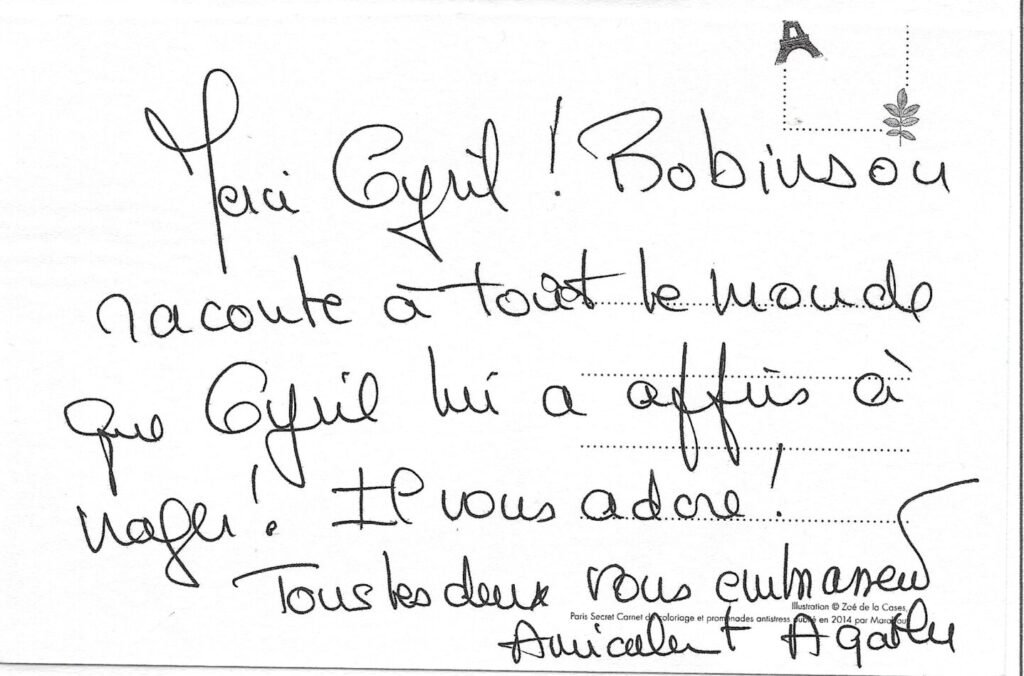 Merci Cyril ! Robinson
raconte à tout le monde
que Cyril lui a appris à
nager ! Il vous adore !
Tous les deux vous embrassent
Illustration © Zoé de la Cases,
Paris Secret Carnet de coloriage et promenades antistress publié en 2014 par Marabout
Amicalement Agathe